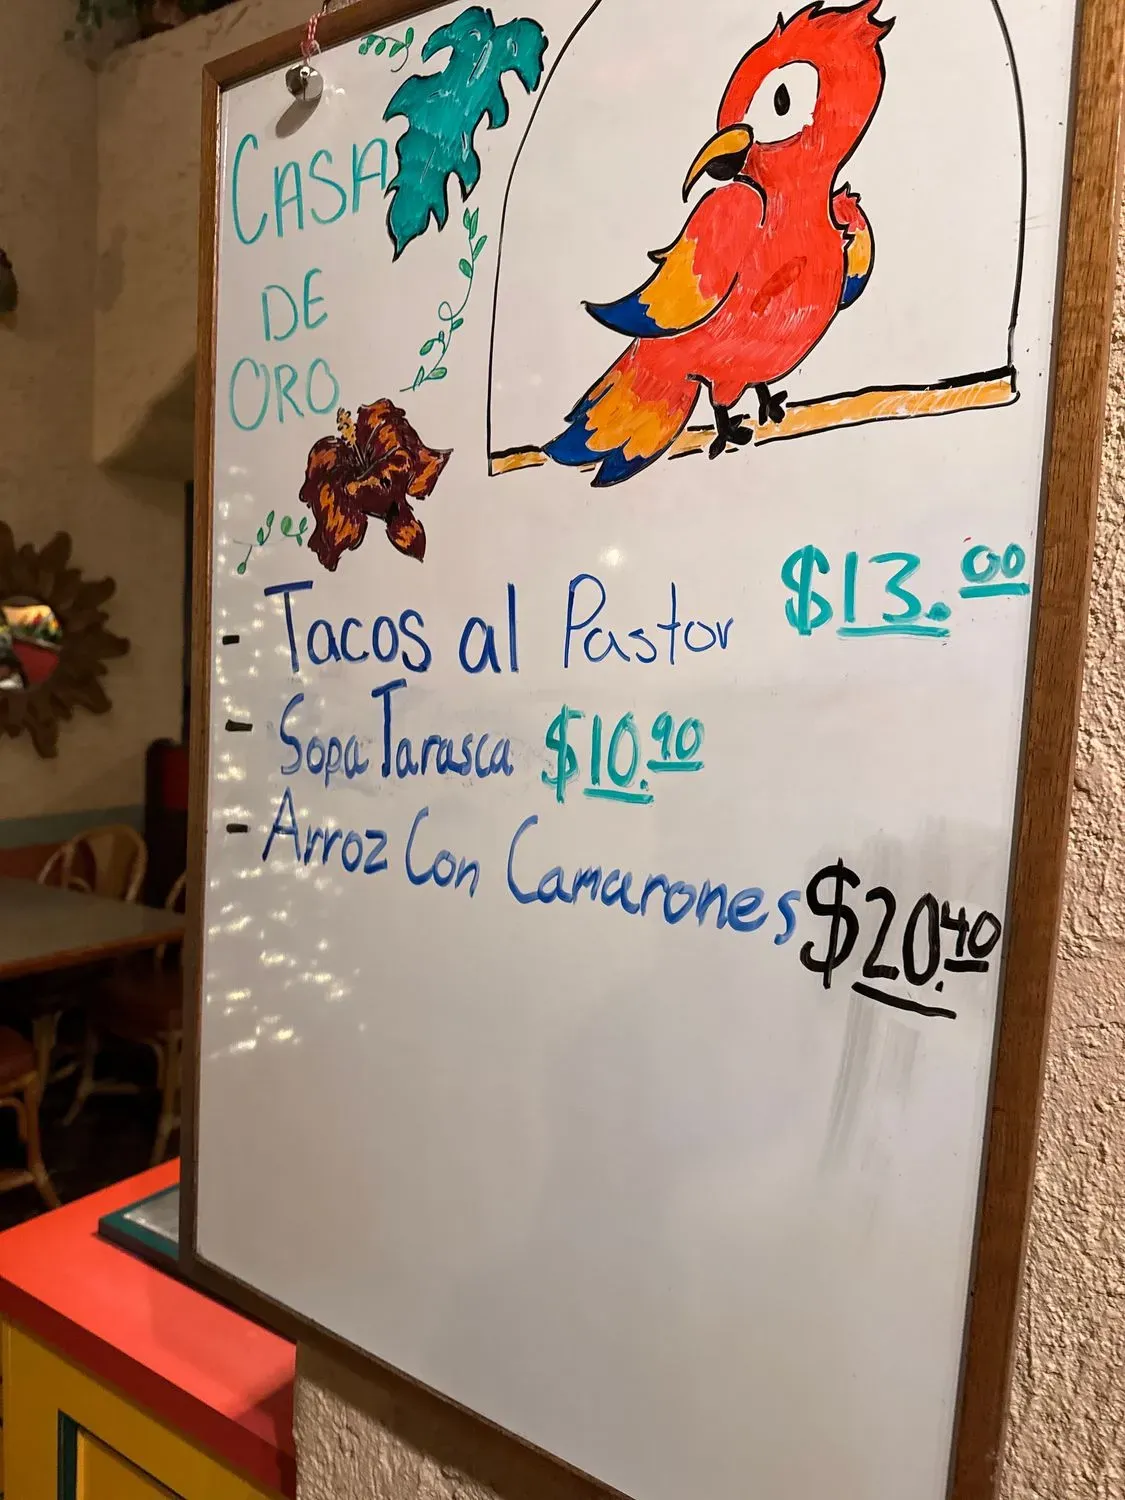 CASA
DE
ORO
- Tacos al Pastor $13.00
- Sopa Tarasca $10.90
- Arroz Con Camarones $20.40